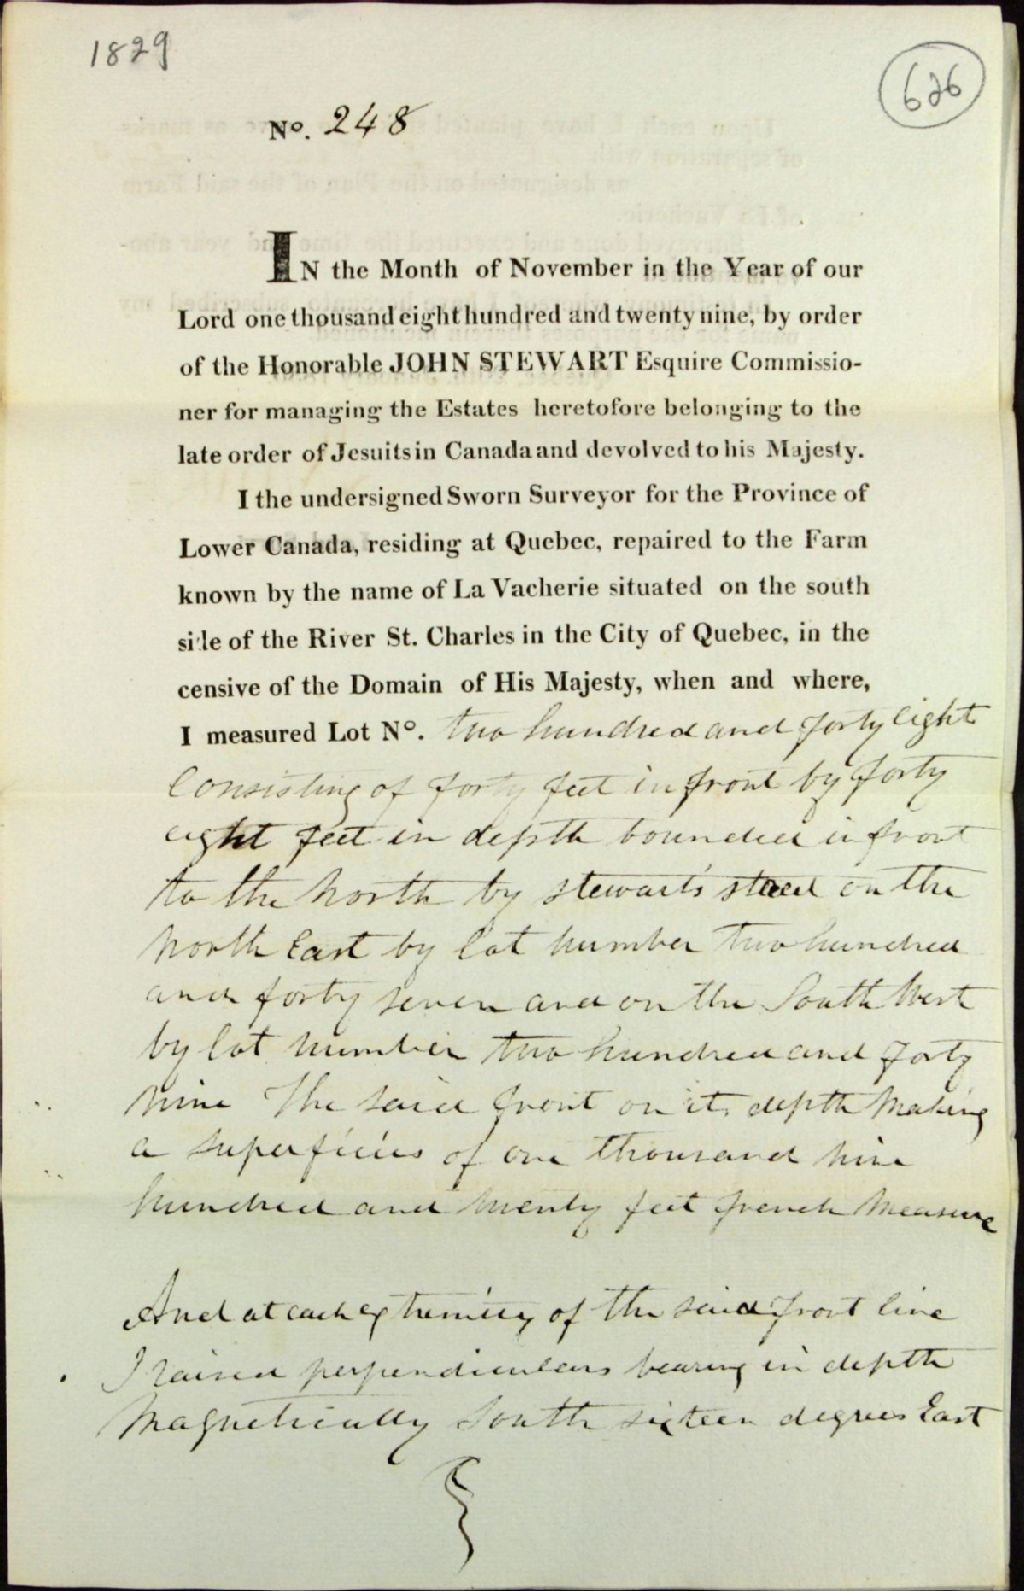 1829
626
No. 248
IN the Month of November in the Year of our
Lord one thousand eight hundred and twenty nine, by order
of the Honorable JOHN STEWART Esquire Commissio-
ner for managing the Estates heretofore belonging to the
late order of Jesuits in Canada and devolved to his Majesty.
I the undersigned Sworn Surveyor for the Province of
Lower Canada, residing at Quebec, repaired to the Farm
known by the name of La Vacherie situated on the south
side of the River St. Charles in the City of Quebec, in the
censive of the Domain of His Majesty, when and where,
I measured Lot No. two hundred and forty eight
Consisting of forty feet in front by forty
eight feet in depth bounded in front
to the North by Stewart's street on the
North East by lot number two hundred
and forty seven and on the South West
by lot number two hundred and forty
nine The said front on its depth Making
a superficies of one thousand nine
hundred and twenty feet french Measure
And at each extremity of the said front line
I raised perpendiculars bearing in depth
Magnetically South sixteen degrees East